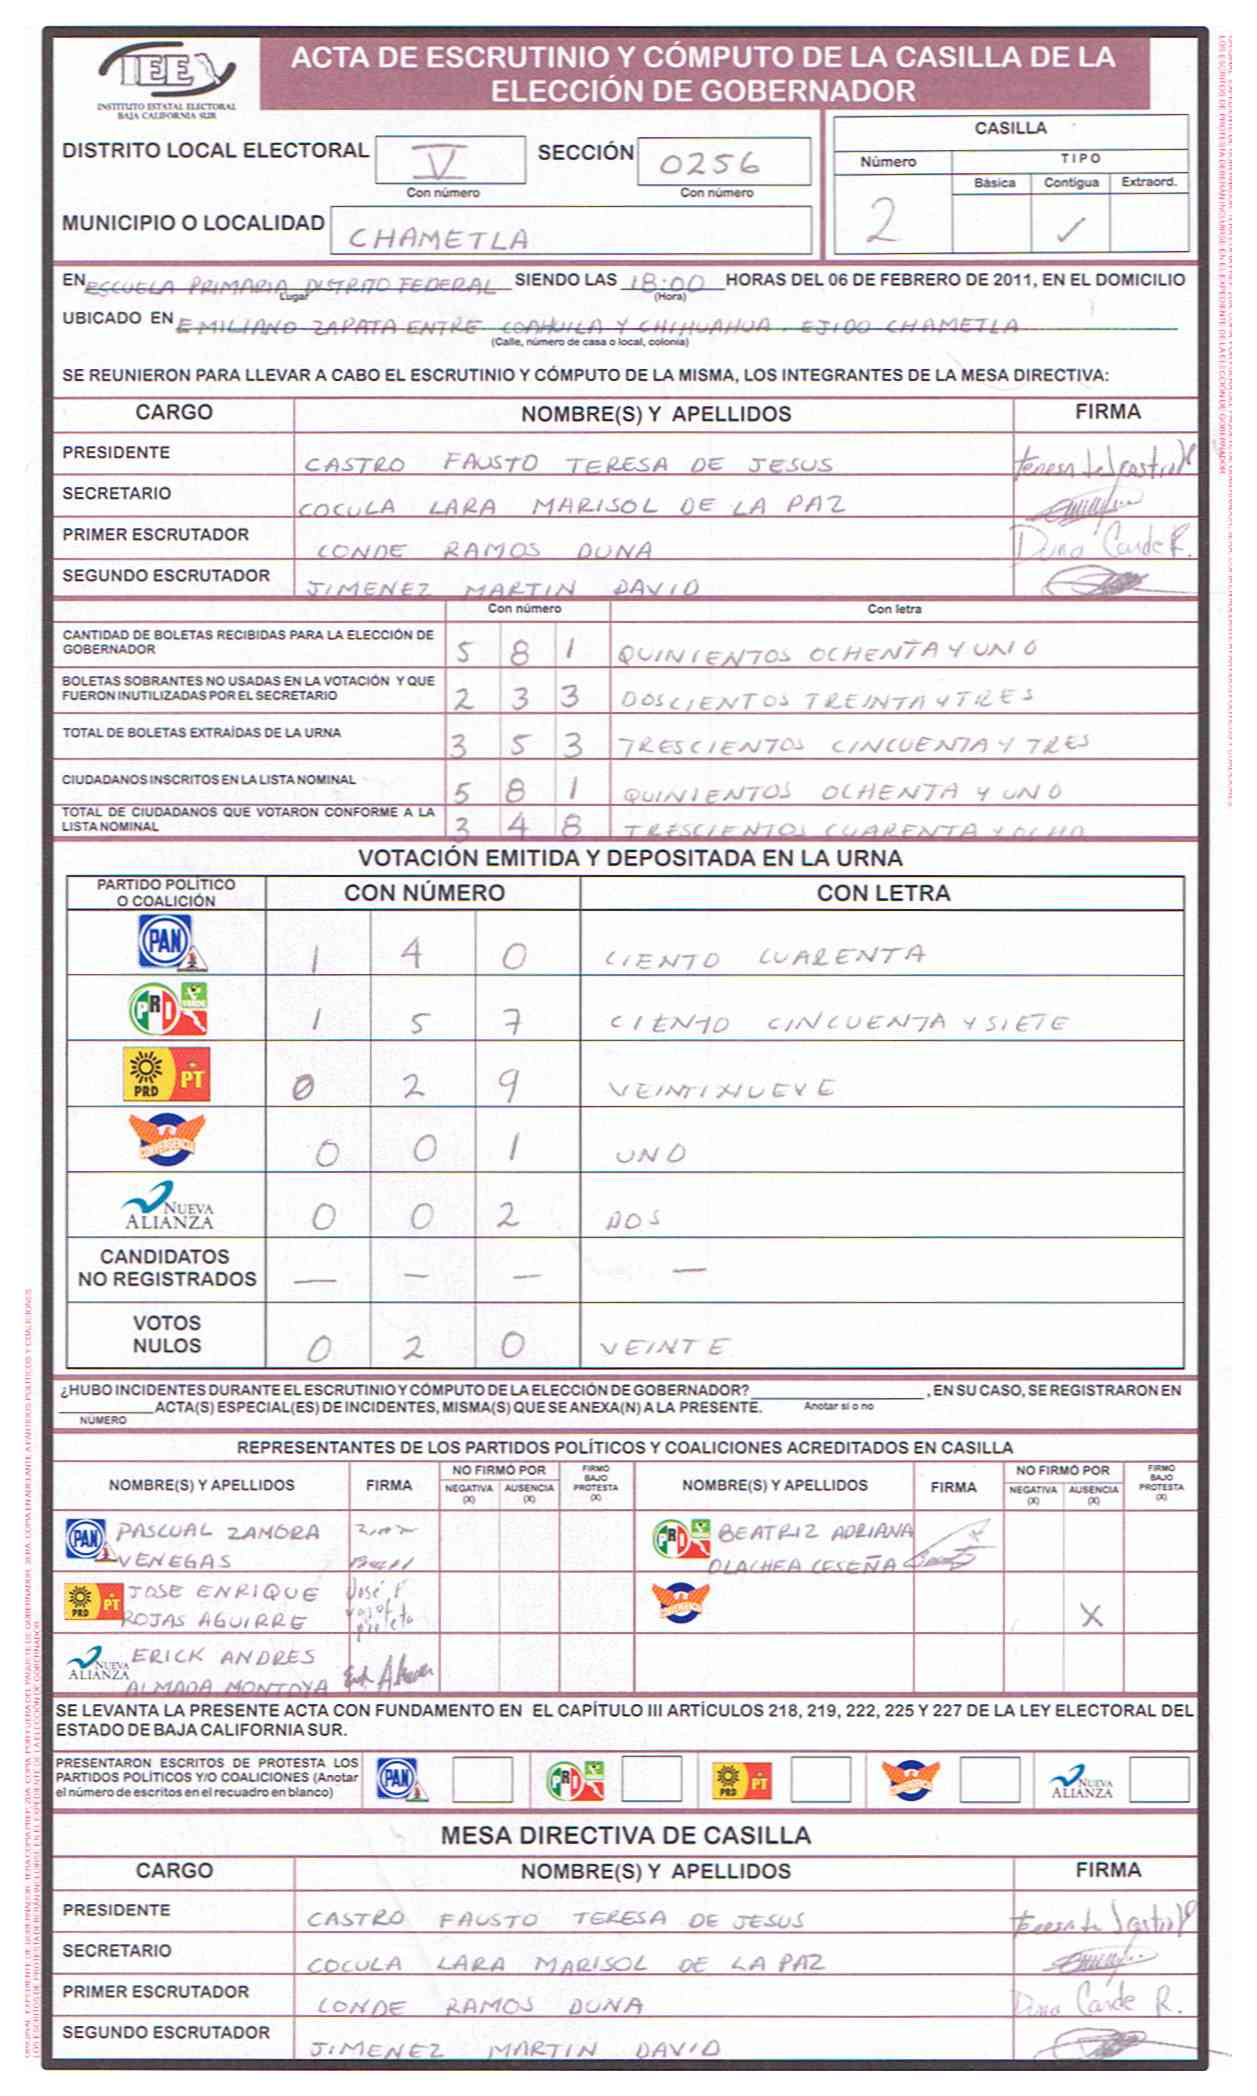 IEE
INSTITUTO ESTATAL ELECTORAL
BAJA CALIFORNIA SUR
ACTA DE ESCRUTINIO Y CÓMPUTO DE LA CASILLA DE LA
ELECCIÓN DE GOBERNADOR
DISTRITO LOCAL ELECTORAL V SECCIÓN 0256
Con número Con número
MUNICIPIO O LOCALIDAD CHAMETLA
CASILLA
Número TIPO
Básica Contigua Extraord.
2 ✓
EN ESCUELA PRIMARIA DISTRITO FEDERAL SIENDO LAS 18:00 HORAS DEL 06 DE FEBRERO DE 2011, EN EL DOMICILIO
Lugar (Hora)
UBICADO EN EMILIANO ZAPATA ENTRE COAHUILA Y CHIHUAHUA. EJIDO CHAMETLA
(Calle, número de casa o local, colonia)
SE REUNIERON PARA LLEVAR A CABO EL ESCRUTINIO Y CÓMPUTO DE LA MISMA, LOS INTEGRANTES DE LA MESA DIRECTIVA:
CARGO NOMBRE(S) Y APELLIDOS FIRMA
PRESIDENTE CASTRO FAUSTO TERESA DE JESUS
SECRETARIO COCULA LARA MARISOL DE LA PAZ
PRIMER ESCRUTADOR CONDE RAMOS DUNA
SEGUNDO ESCRUTADOR JIMENEZ MARTIN DAVID
Con número Con letra
CANTIDAD DE BOLETAS RECIBIDAS PARA LA ELECCIÓN DE
GOBERNADOR 5 8 1 QUINIENTOS OCHENTA Y UNO
BOLETAS SOBRANTES NO USADAS EN LA VOTACIÓN Y QUE
FUERON INUTILIZADAS POR EL SECRETARIO 2 3 3 DOSCIENTOS TREINTA Y TRES
TOTAL DE BOLETAS EXTRAÍDAS DE LA URNA 3 5 3 TRESCIENTOS CINCUENTA Y TRES
CIUDADANOS INSCRITOS EN LA LISTA NOMINAL 5 8 1 QUINIENTOS OCHENTA Y UNO
TOTAL DE CIUDADANOS QUE VOTARON CONFORME A LA
LISTA NOMINAL 3 4 8 TRESCIENTOS CUARENTA Y OCHO
VOTACIÓN EMITIDA Y DEPOSITADA EN LA URNA
PARTIDO POLÍTICO
O COALICIÓN CON NÚMERO CON LETRA
PAN 1 4 0 CIENTO CUARENTA
PRI VERDE 1 5 7 CIENTO CINCUENTA Y SIETE
PRD PT 0 2 9 VEINTINUEVE
CONVERGENCIA 0 0 1 UNO
NUEVA
ALIANZA 0 0 2 DOS
CANDIDATOS
NO REGISTRADOS — — — —
VOTOS
NULOS 0 2 0 VEINTE
¿HUBO INCIDENTES DURANTE EL ESCRUTINIO Y CÓMPUTO DE LA ELECCIÓN DE GOBERNADOR? , EN SU CASO, SE REGISTRARON EN
ACTA(S) ESPECIAL(ES) DE INCIDENTES, MISMA(S) QUE SE ANEXA(N) A LA PRESENTE. Anotar si o no
NÚMERO
REPRESENTANTES DE LOS PARTIDOS POLÍTICOS Y COALICIONES ACREDITADOS EN CASILLA
NOMBRE(S) Y APELLIDOS FIRMA NO FIRMÓ POR NEGATIVA (X) AUSENCIA (X) FIRMÓ BAJO PROTESTA (X) NOMBRE(S) Y APELLIDOS FIRMA NO FIRMÓ POR NEGATIVA (X) AUSENCIA (X) FIRMÓ BAJO PROTESTA (X)
PAN PASCUAL ZAMORA PRI BEATRIZ ADRIANA
VENEGAS OLACHEA CESEÑA
PRD PT JOSE ENRIQUE CONVERGENCIA X
ROJAS AGUIRRE
NUEVA ALIANZA ERICK ANDRES
ALMADA MONTOYA
SE LEVANTA LA PRESENTE ACTA CON FUNDAMENTO EN EL CAPÍTULO III ARTÍCULOS 218, 219, 222, 225 Y 227 DE LA LEY ELECTORAL DEL
ESTADO DE BAJA CALIFORNIA SUR.
PRESENTARON ESCRITOS DE PROTESTA LOS
PARTIDOS POLÍTICOS Y/O COALICIONES (Anotar
el número de escritos en el recuadro en blanco) PAN PRI PRD PT CONVERGENCIA NUEVA ALIANZA
MESA DIRECTIVA DE CASILLA
CARGO NOMBRE(S) Y APELLIDOS FIRMA
PRESIDENTE CASTRO FAUSTO TERESA DE JESUS
SECRETARIO COCULA LARA MARISOL DE LA PAZ
PRIMER ESCRUTADOR CONDE RAMOS DUNA
SEGUNDO ESCRUTADOR JIMENEZ MARTIN DAVID